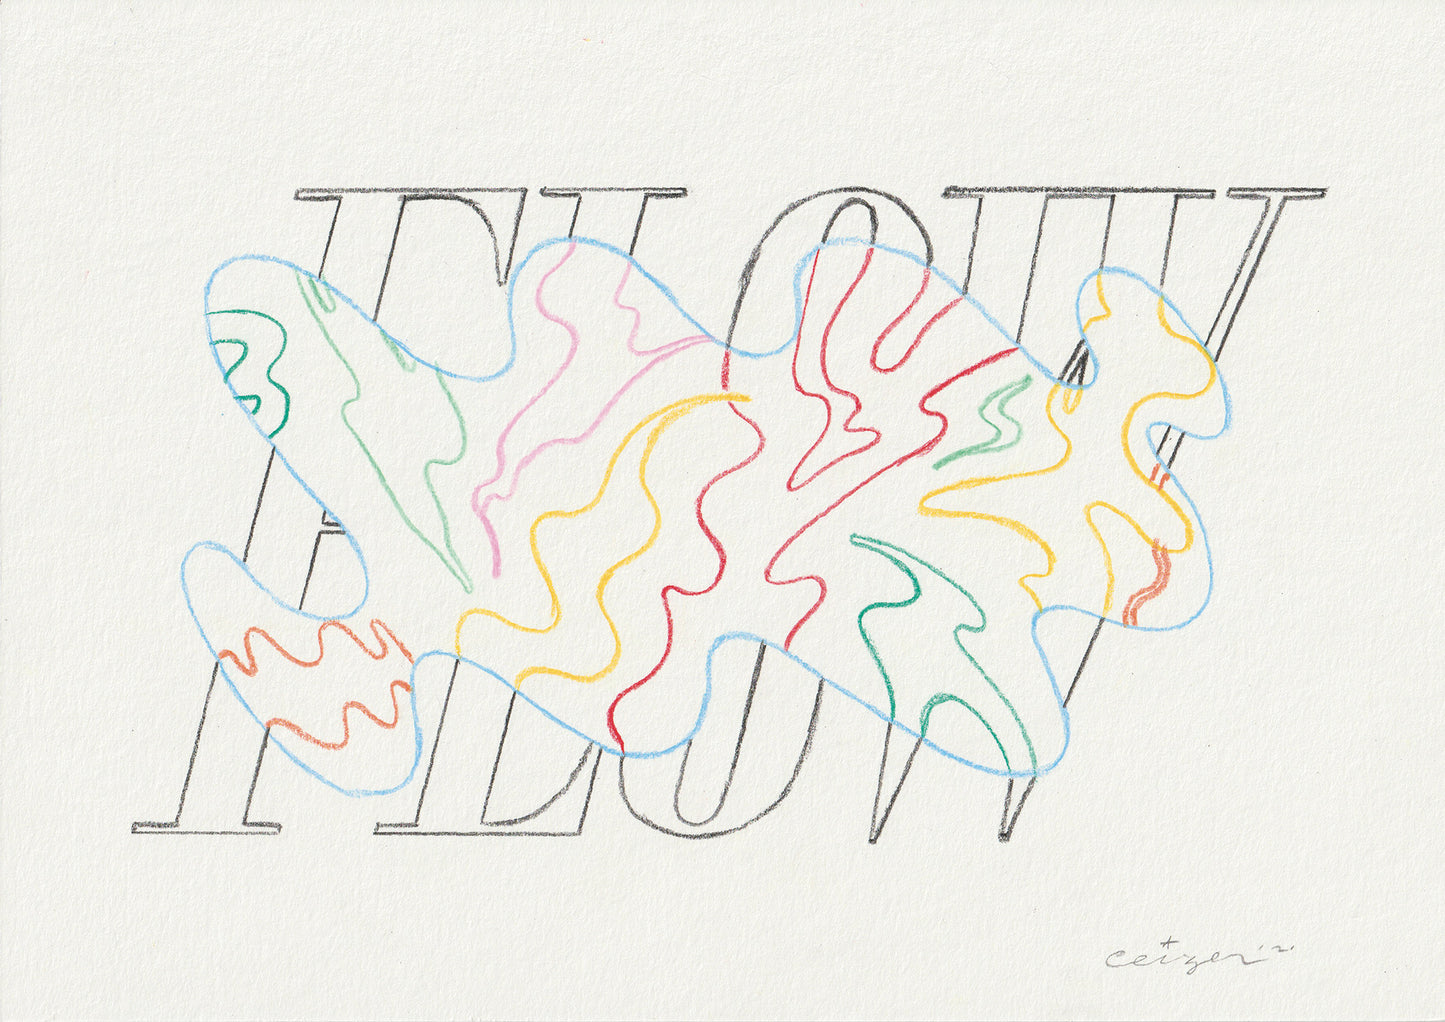 FLOW
ceizer '21